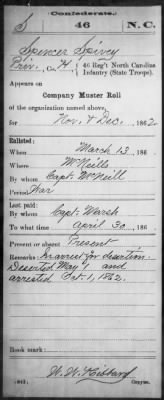 Confederate.
S 46 N.C.
Spencer Spivey
Priv., Co. H, 46 Reg't North Carolina
Infantry (State Troops).
Appears on
Company Muster Roll
of the organization named above,
for Nov. & Dec., 1862.
Enlisted:
When March 13, 186
Where McNeills
By whom Capt. McNeill
Period War
Last paid:
By whom Capt. Warsh
To what time April 30, 186
Present or absent Present
Remarks: In arrest for desertion.
Deserted May 9 and
arrested Oct. 1, 1862.
Book mark:
W. W. Hibbard
(642) Copyist.